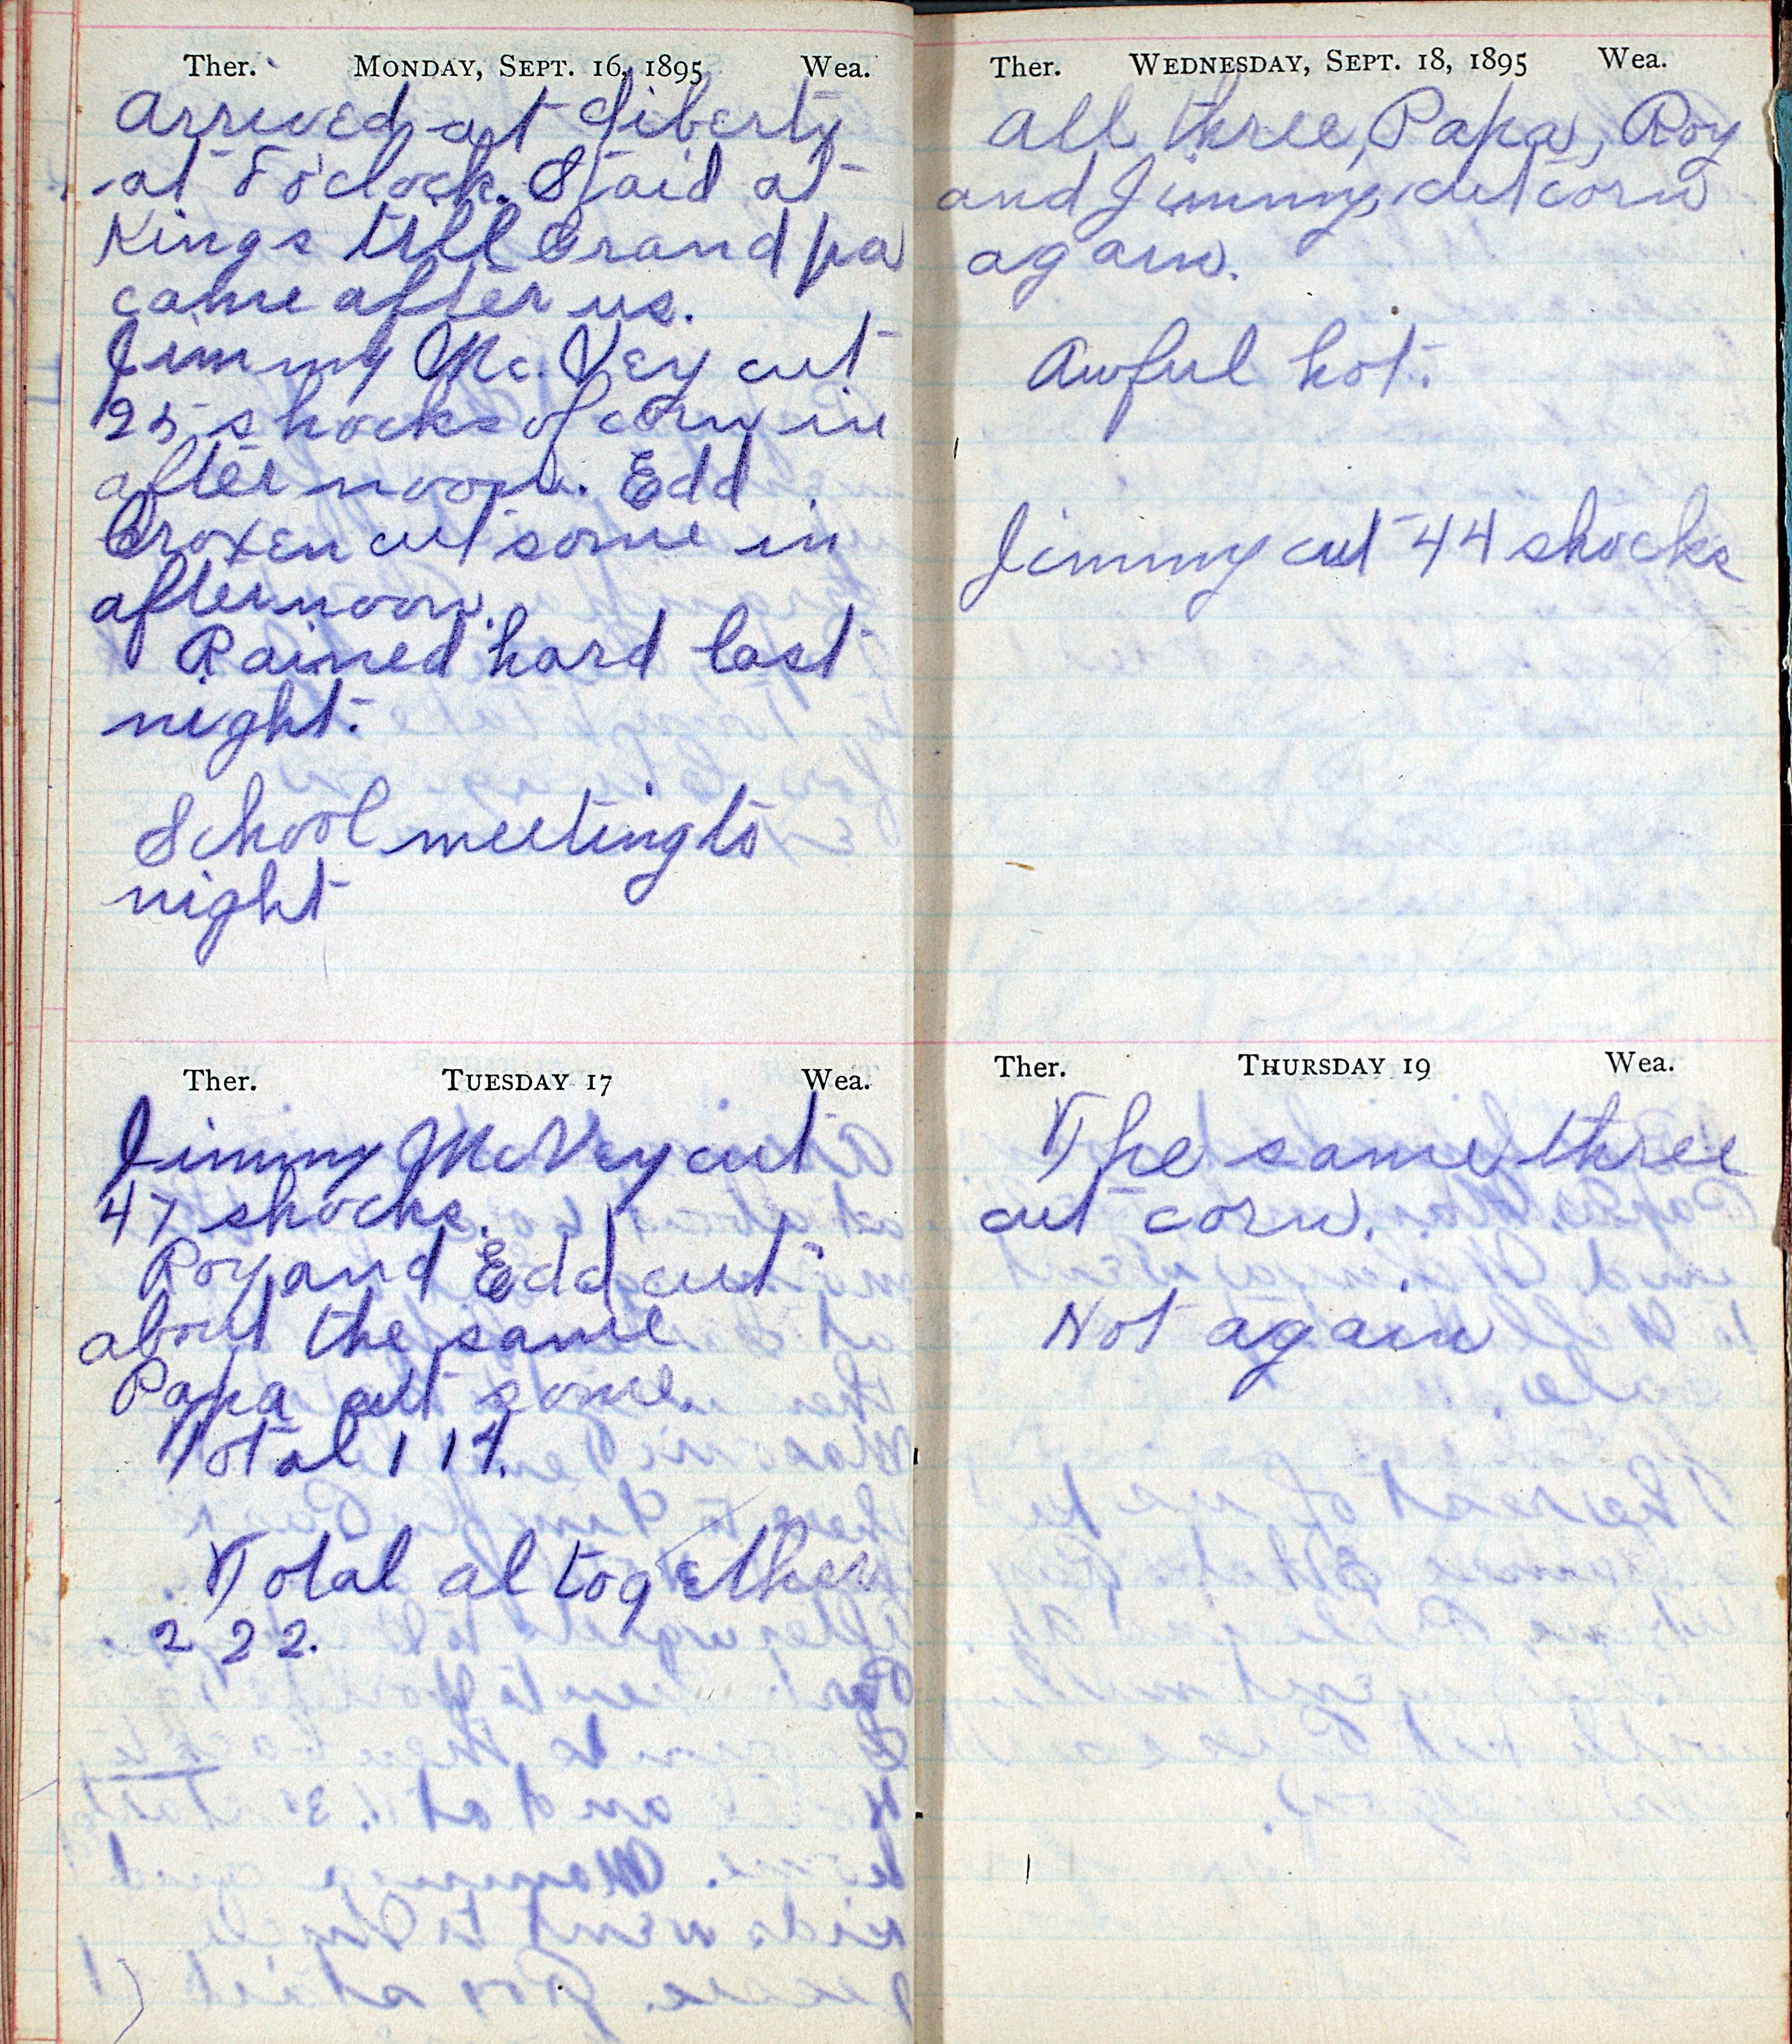 Ther. MONDAY, SEPT. 16, 1895 Wea.
Arrived at Liberty
at 5 o'clock. Staid at
Kings till Grand pa
came after us.
Jimmy Mc. Vey cut
25 shocks of corn in
after noon. Edd
Croxen cut some in
afternoon.
Rained hard last
night.
School meeting to
night
Ther. TUESDAY 17 Wea.
Jimmy McVey cut
47 shocks.
Roy and Edd cut
about the same
Papa cut some.
Total 117.
Total al together
222.
Ther. WEDNESDAY, SEPT. 18, 1895 Wea.
All three, Papa, Roy
and Jimmy, cut corn
again.
Awful hot.
Jimmy cut 44 shocks
Ther. THURSDAY 19 Wea.
The same three
cut corn.
Hot again